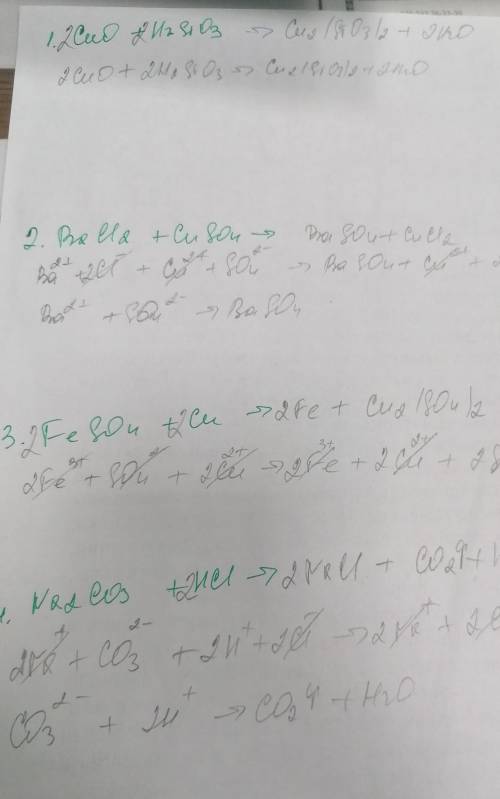 1. 2CuO + 2H2SiO3 -> Cu2(SiO3)2 + 2H2O
2CuO + 2H2SiO3 -> Cu2(SiO3)2 + 2H2O
2. BaCl2 + CuSO4 -> BaSO4 + CuCl2
Ba2+ + 2Cl- + Cu2+ + SO4 2- -> BaSO4 + Cu2+ + 2
Ba2+ + SO4 2- -> BaSO4
3. 2FeSO4 + 2Cu -> 2Fe + Cu2(SO4)2
2Fe3+ + SO4 2- + 2Cu2+ -> 2Fe3+ + 2Cu2+ + 2S
4. Na2CO3 + 2HCl -> 2NaCl + CO2↑ + H
2Na+ + CO3 2- + 2H+ + 2Cl- -> 2Na+ + 2C
CO3 2- + 2H+ -> CO2↑ + H2O